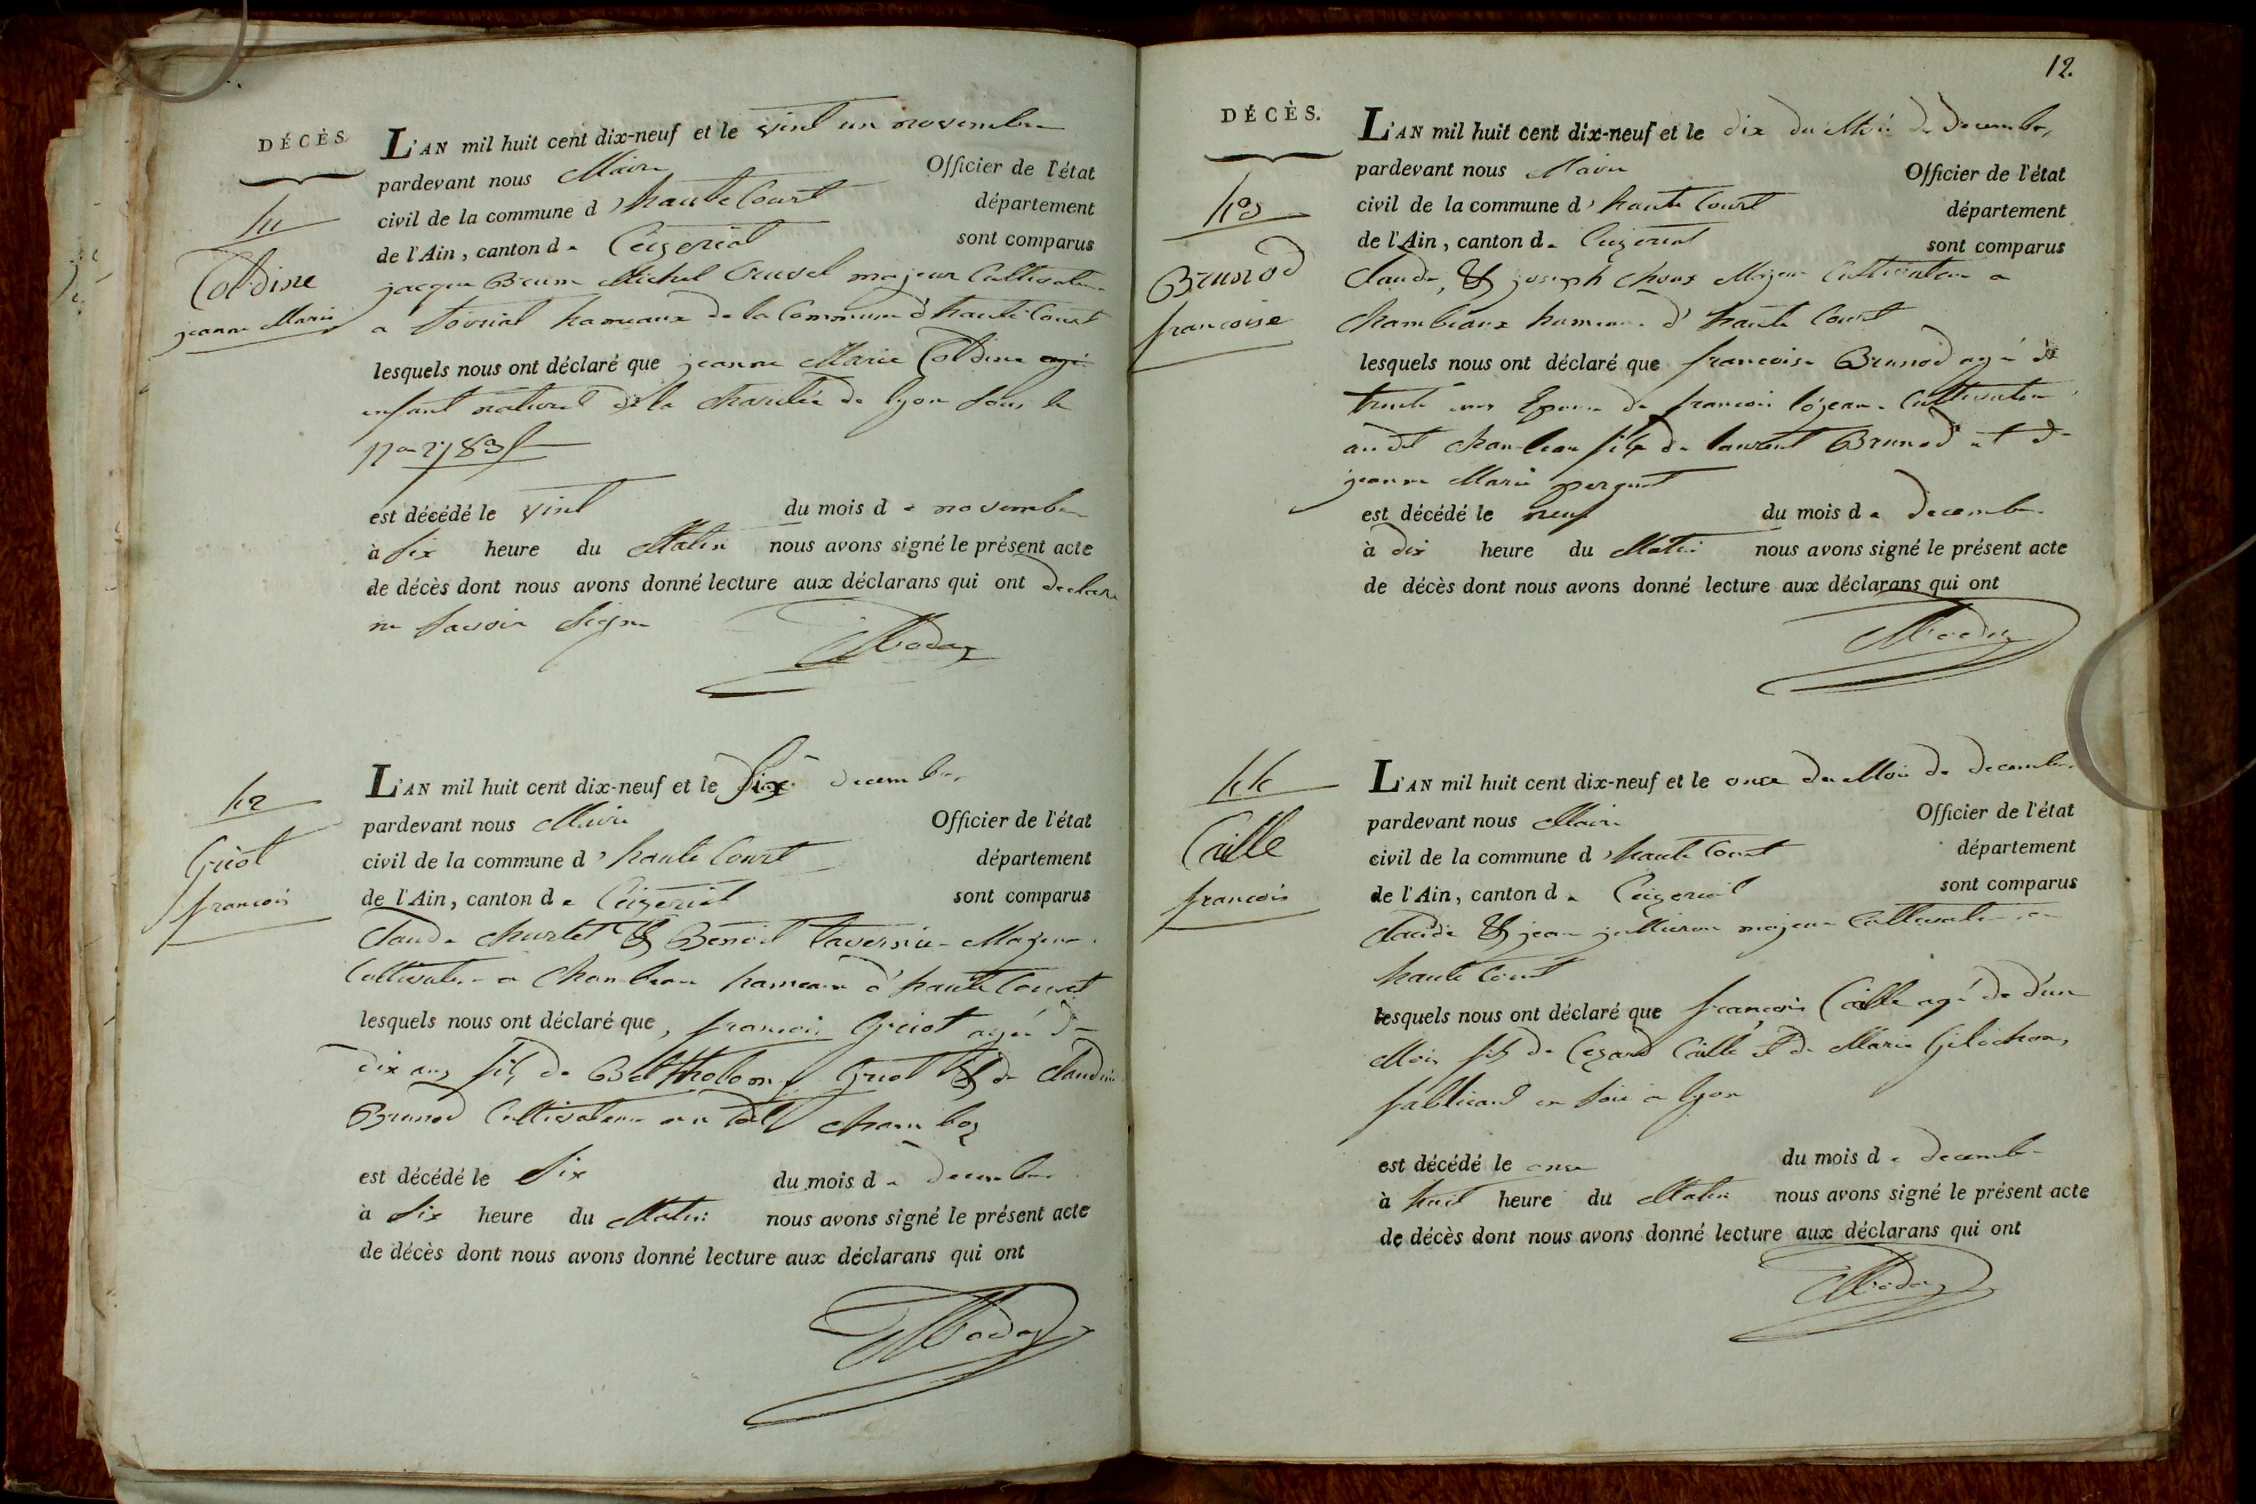 DÉCÈS
41
Coldine
jeanne Marie
L'AN mil huit cent dix-neuf et le vint un novembre
pardevant nous Maire Officier de l'état
civil de la commune d'haute Court département
de l'Ain, canton de Ceizeriat sont comparus
jacque Brun Michel majeur Cultivateur
a hameaux de la Commune d'haute Court
lesquels nous ont déclaré que jeanne Marie Coldine
enfant naturel de la Charitée de lyon sous le
est décédé le vint du mois de novembre
à six heure du Matin nous avons signé le présent acte
de décès dont nous avons donné lecture aux déclarans qui ont declare
ne savoir signe
42
Griot
francois
L'AN mil huit cent dix-neuf et le Six decembre
pardevant nous Maire Officier de l'état
civil de la commune d'haute Court département
de l'Ain, canton de Ceizeriat sont comparus
Claude & Benoit tavernier Majeur
Cultivateur a Chambeau hameaux d'haute Court
lesquels nous ont déclaré que francois Griot agée de
dix ans fils de Bartholomy Griot & de Claudine
Brunod Cultivateur au dit
est décédé le six du mois de decembre
à six heure du Matin nous avons signé le présent acte
de décès dont nous avons donné lecture aux déclarans qui ont
12.
DÉCÈS.
43
Brunod
francoise
L'AN mil huit cent dix-neuf et le dix du Mois de decembre
pardevant nous Maire Officier de l'état
civil de la commune d'haute Court département
de l'Ain, canton de Ceizeriat sont comparus
Claude, & joseph Majeur Cultivateur a
Chambeaux hameaux d'haute Court
lesquels nous ont déclaré que francoise Brunod agé de
trente ans Epouse de francois Cultivateur
au dit Chambeau fille de laurent Brunod et de
jeanne Marie perquet
est décédé le neuf du mois de decembre
à dix heure du Matin nous avons signé le présent acte
de décès dont nous avons donné lecture aux déclarans qui ont
44
Caille
francois
L'AN mil huit cent dix-neuf et le onze du Mois de decembre
pardevant nous Maire Officier de l'état
civil de la commune d'haute Court département
de l'Ain, canton de Ceizeriat sont comparus
Claude & jean majeur Cultivateur a
haute Court
lesquels nous ont déclaré que francois Caille agé de d'un
Mois fils de Cezard Caille et de Marie
fabricant en soie a lyon
est décédé le onze du mois de decembre
à huit heure du Matin nous avons signé le présent acte
de décès dont nous avons donné lecture aux déclarans qui ont